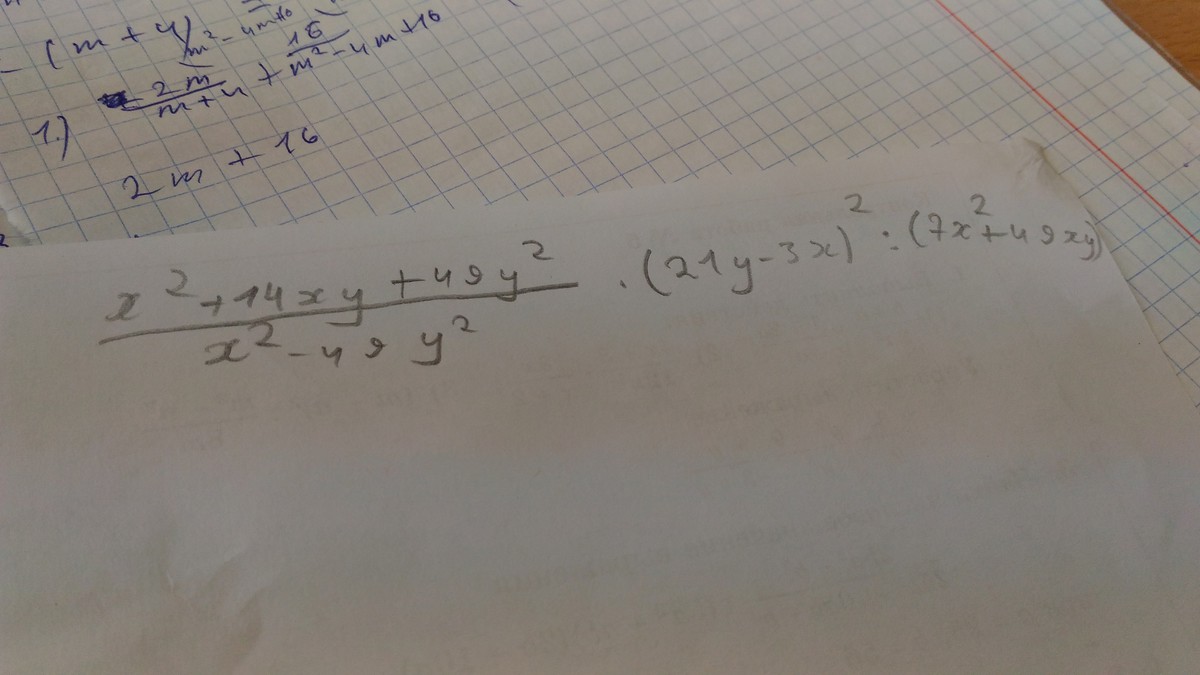 - (m+4) m² - 4m+16
- 2m/m+4 + 16/m²-4m+16
1.)
2m + 16
x²+14xy+49y²/x²-49y² · (21y-3x)² : (7x²+49xy)